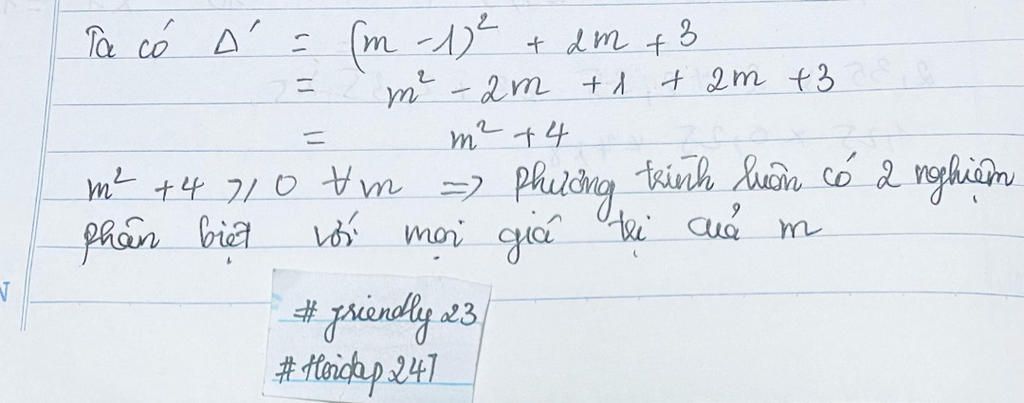 Ta có Δ' = (m - 1)² + 2m + 3
= m² - 2m + 1 + 2m + 3
= m² + 4
m² + 4 ⩾ 0 ∀m => phương trình luôn có 2 nghiệm
phân biệt với mọi giá trị cuả m
# friendly23
# Hoidap247